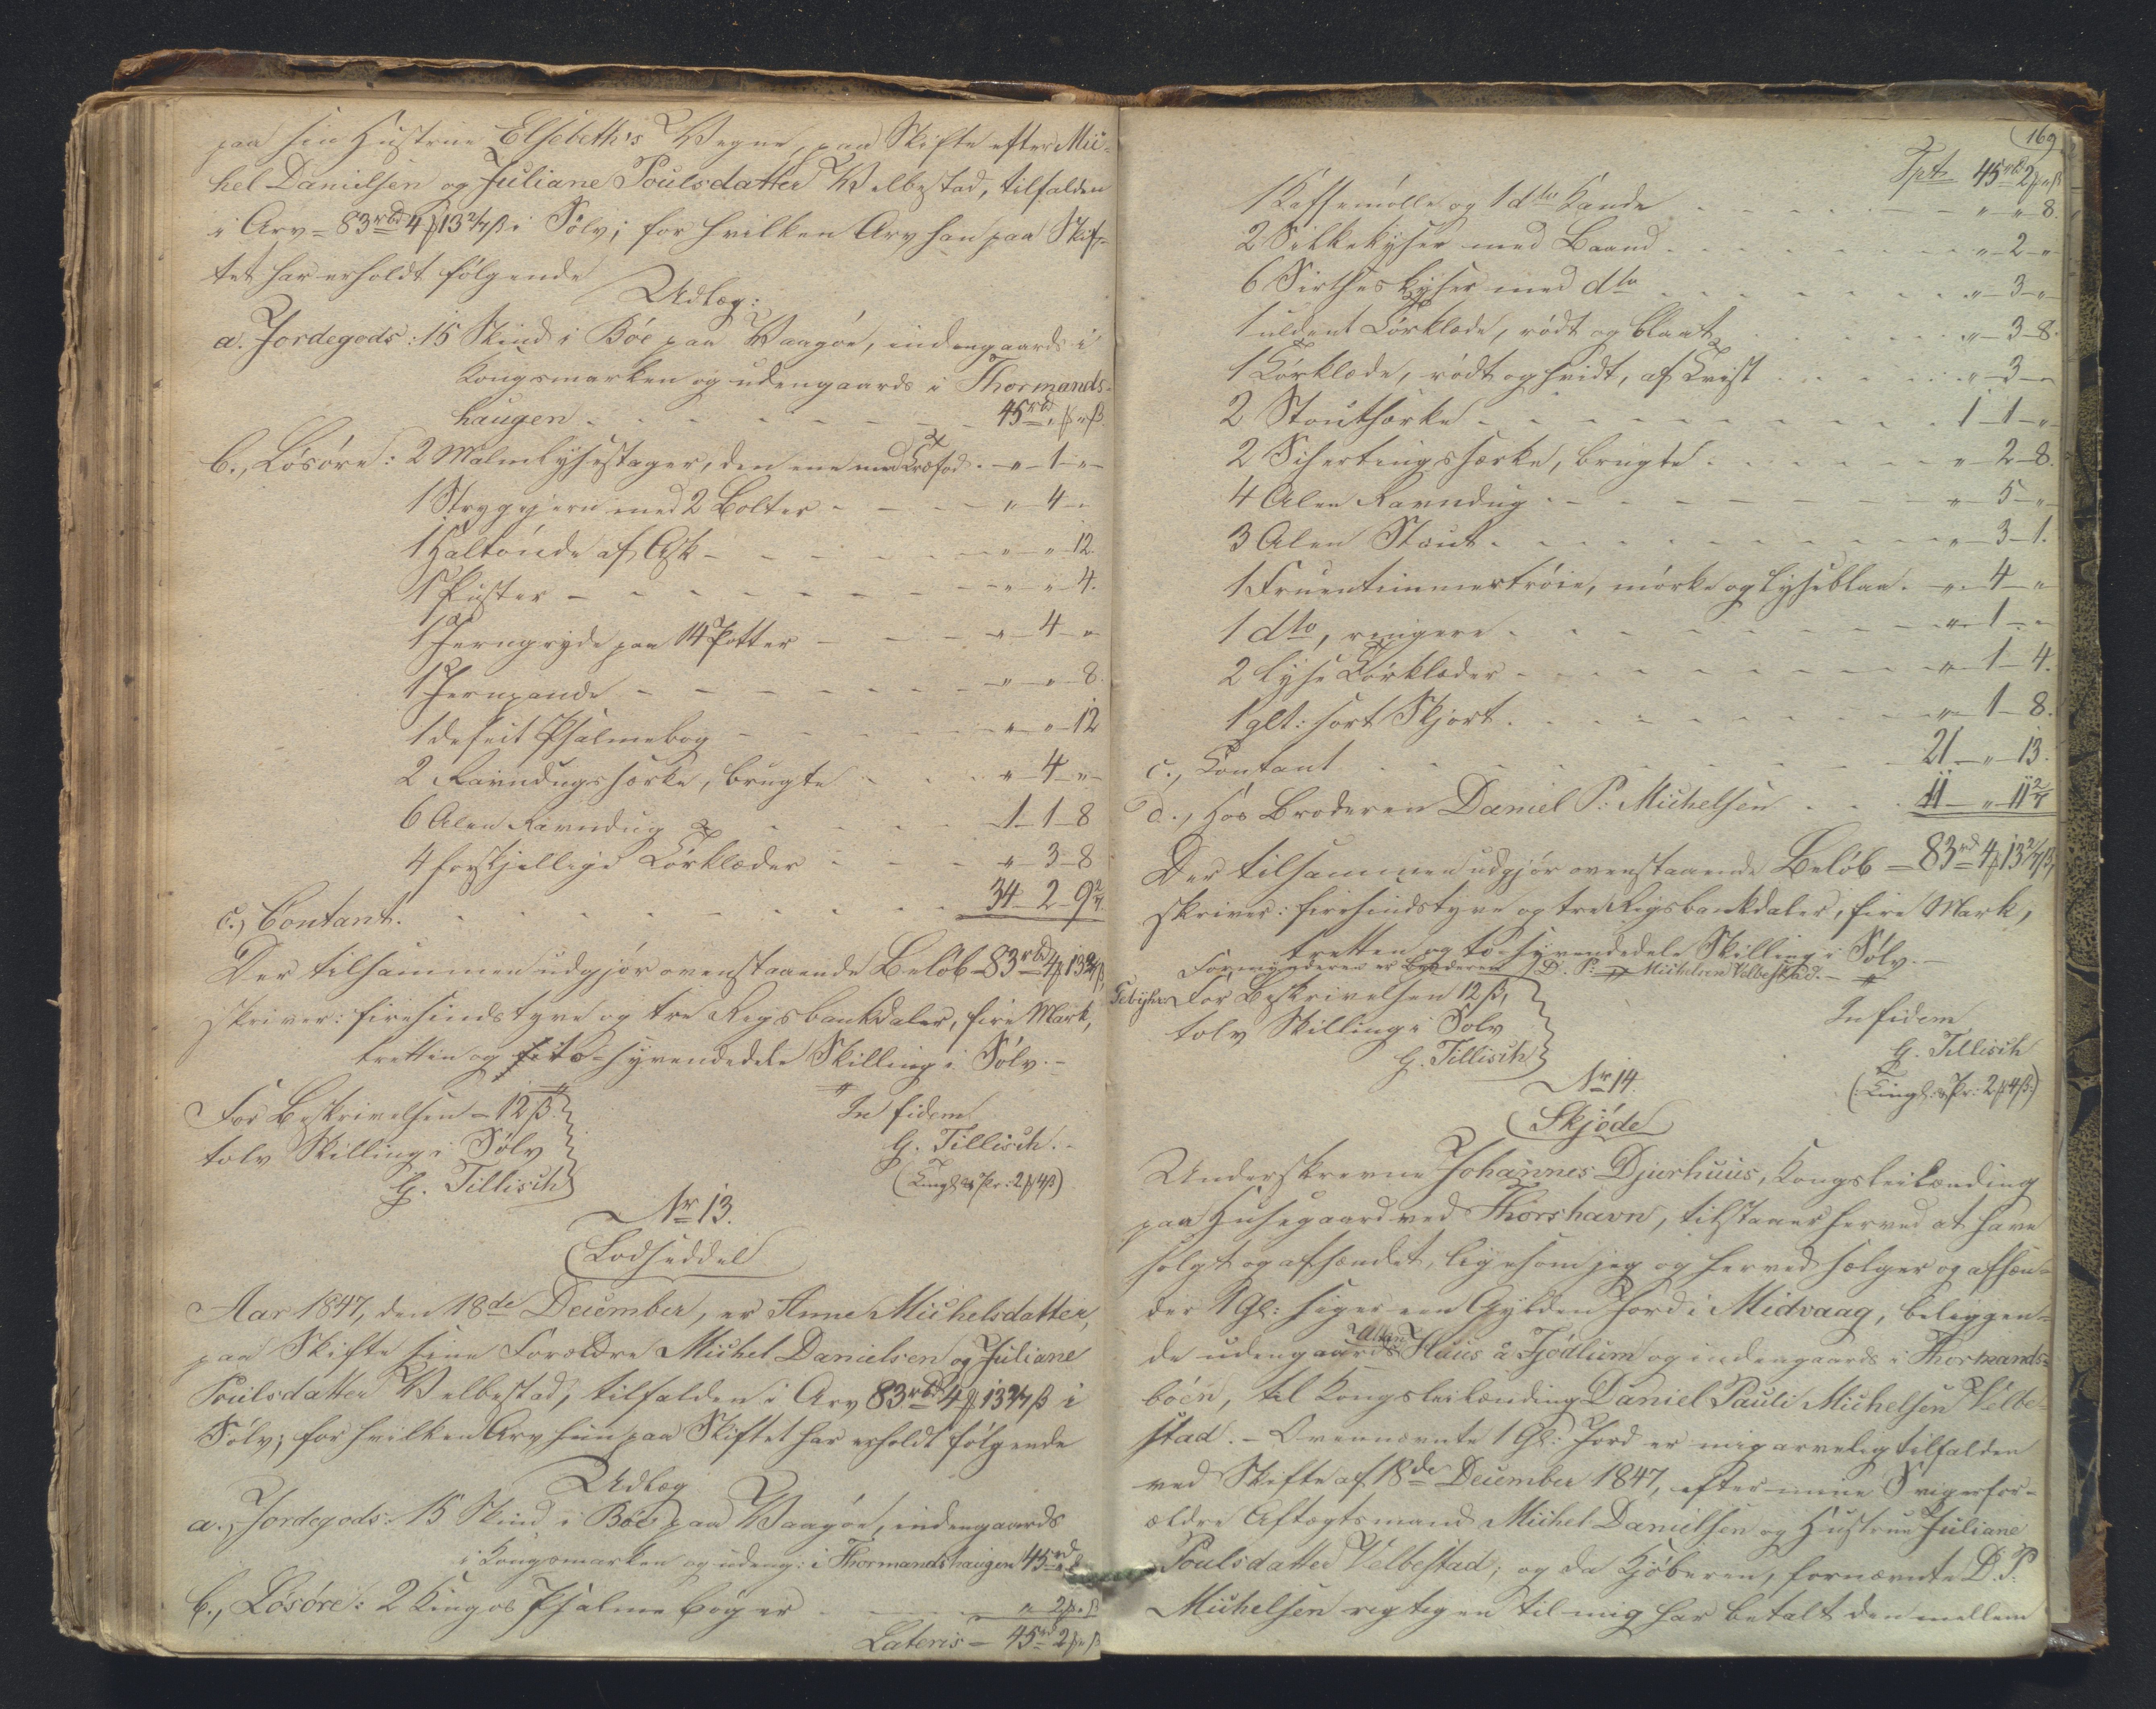 paa sin Hustrue Elsebeth's Vegne, paa Skifte efter Mi-
hel Danielsen og Juliane Poulsdatter Velbestad, tilfalden
i Arv = 83 rbd 4 ₻ 13 2/7 ß i Sölv; for hvilken Arv han paa Skif-
tet har erholdt fölgende
Udlæg:
a. Jordegods: 15 Skind i Böe paa Vaagöe, indengaards i
Kongsmarken og udengaards i Thormands-
haugen - - - - 45 rbd „ ₻ „ ß
b., Lösöre: 2 Malmlysestager, den ene med Træfod - „ - 1 - „
1 Strygejern med 2 Bolter - - - „ - 4 - „
1 Haltönde af Ask - - - - „ - „ 12.
1 Puster - - - - „ - „ 4.
1 Jerngryde paa 14 Potter - - - „ - 4 - „
1 Jernpande - - - - „ - „ 8.
1 defect Psalmebog - - - - „ - „ 12
2 Ravndugssærke, brugte - - - „ - 4 - „
6 Alen Ravndug - - - 1 - 1 - 8
4 forskjellige Törklæder - - - „ - 3 - 8
c., Contant. - - - - 34 - 2 - 9 2/7
Der tilsammen udgjör ovenstaaende Belöb - 83 rbd 4 ₻ 13 2/7 ß,
skriver: firesindstyve og tre Rigsbankdaler, fire Mark,
tretten og to-syvendedele Skilling i Sölv. -
For Beskrivelsen - 12 ß
tolv Skilling i Sölv
G. Tillisch
In fidem
G. Tillisch. -
(Tingl. & Pr: 2 ₻ 4 ß)
Nr 13.
Lodseddel
Aar 1847, den 18de December, er Anne Michelsdatter,
paa Skifte sine Forældre Michel Danielsen og Juliane
Poulsdatter Velbestad, tilfalden i Arv 83 rbd 4 ₻ 13 2/7 ß i
Sölv; for hvilken Arv hun paa Skiftet har erholdt fölgende
Udlæg
a., Jordegods: 15 Skind i Böe paa Vaagöe, indengaards
i Kongsmarken og udeng: i Thormandshaugen 45 rd
b., Lösöre: 2 Kingos Psalmeböger - - „ 2 ₻ „ ß
Lateris - 45 rd 2 ₻ „ ß
169
Tpt. 45 rbd 2 ₻ „ ß
1 Kaffemölle og 1 dto Kande - - - „ - „ 8.
2 Silkekyser med Baand - - - „ - 2 - „
6 Sirtseskyser med dto - - - „ - 3 - „
1 uldent Törklæde, rödt og blaat - - - „ - 3 - 8.
1 Törklæde, rödt og hvidt, af Tvist - - - „ - 3 - „
2 Stoutsærke - - - 1 - 1 - „
2 Schertingssærke, brugte - - - „ - 2 - 8.
4 Alen Ravndug - - - „ - 5 - „
3 Alen Stout - - - „ - 3 - 1.
1 Fruentimmertröie, mörke og lyseblaa - „ - 4 - „
1 dto, ringere - - - „ - 1 - „
2 lyse Törklæder - - - „ - 1 - 4.
1 glt: sort Skjört - - - „ - 1 - 8.
c., Contant - - - 21 - „ - 13.
d., Hos Broderen Daniel P: Michelsen - - - 11 - „ - 11 2/7
Der tilsammen udgjör ovenstaaende Belöb - 83 rd 4 ₻ 13 2/7 ß,
skriver: firesindstyve og tre Rigsbankdaler, fire Mark,
tretten og to-syvendedele Skilling i Sölv. -
Formynderen er Broderen D. P. Michelsen Velbestad. -
Gebyhr: For Beskrivelsen 12 ß,
tolv Skilling i Sölv
G. Tillisch
In fidem
G. Tillisch
(Tingl. & Pr: 2 ₻ 4 ß)
Nr 14.
Skjöde
Underskrevne Johannes Djurhuus, Kongsleilænding
paa Husegaard ved Thorshavn, tilstaaer herved at have
solgt og afhændet, ligesom jeg og herved sælger og afhæn-
der 1 Gl: siger een Gylden Jord i Midvaag, beliggen-
de udengaards Uttan Huus á Fjödlum og indengaards i Thormands-
böen, til Kongsleilænding Daniel Pauli Michelsen Velbe-
stad. - Ovennævnte 1 Gl: Jord er mig arvelig tilfalden
ved Skifte af 18de December 1847, efter mine Svigerfor-
ældre Aftægtsmand Michel Danielsen og Hustrue Juliane
Poulsdatter Velbestad; og da Kjöberen, fornævnte D. P.
Michelsen rigtigen til mig har betalt den mellem